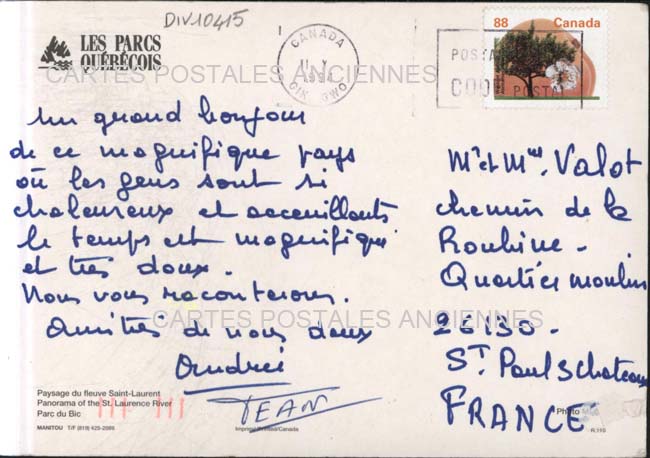 DIV10415
LES PARCS
QUÉBÉCOIS
CANADA
1994
G1K GWO
POSTA
CODE
POSTAL
88 Canada
CARTES POSTALES ANCIENNES
Un grand bonjour
de ce magnifique pays
où les gens sont si
chaleureux et accueillants
le temps est magnifique
et très doux.
Nous vous raconterons.
Amitiés de nous deux
Andrée
JEAN
Mr et Mme Valot
chemin de la
Roubine -
Quartier moulin
26130 -
ST Paul 3 chateau
FRANCE
CARTES POSTALES ANCIENNES
Paysage du fleuve Saint-Laurent
Panorama of the St. Laurence River
Parc du Bic
MANITOU T/F (819) 425-2085
Imprimé/Printed/Canada
Photo
R.110